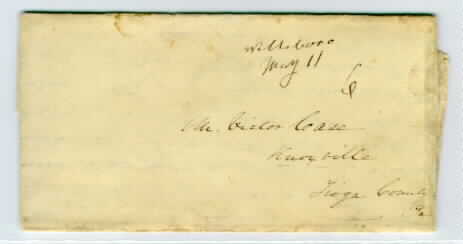 Wellsboro
May 11
6
Mr. Victor Case
Knoxville
Tioga County
Pa